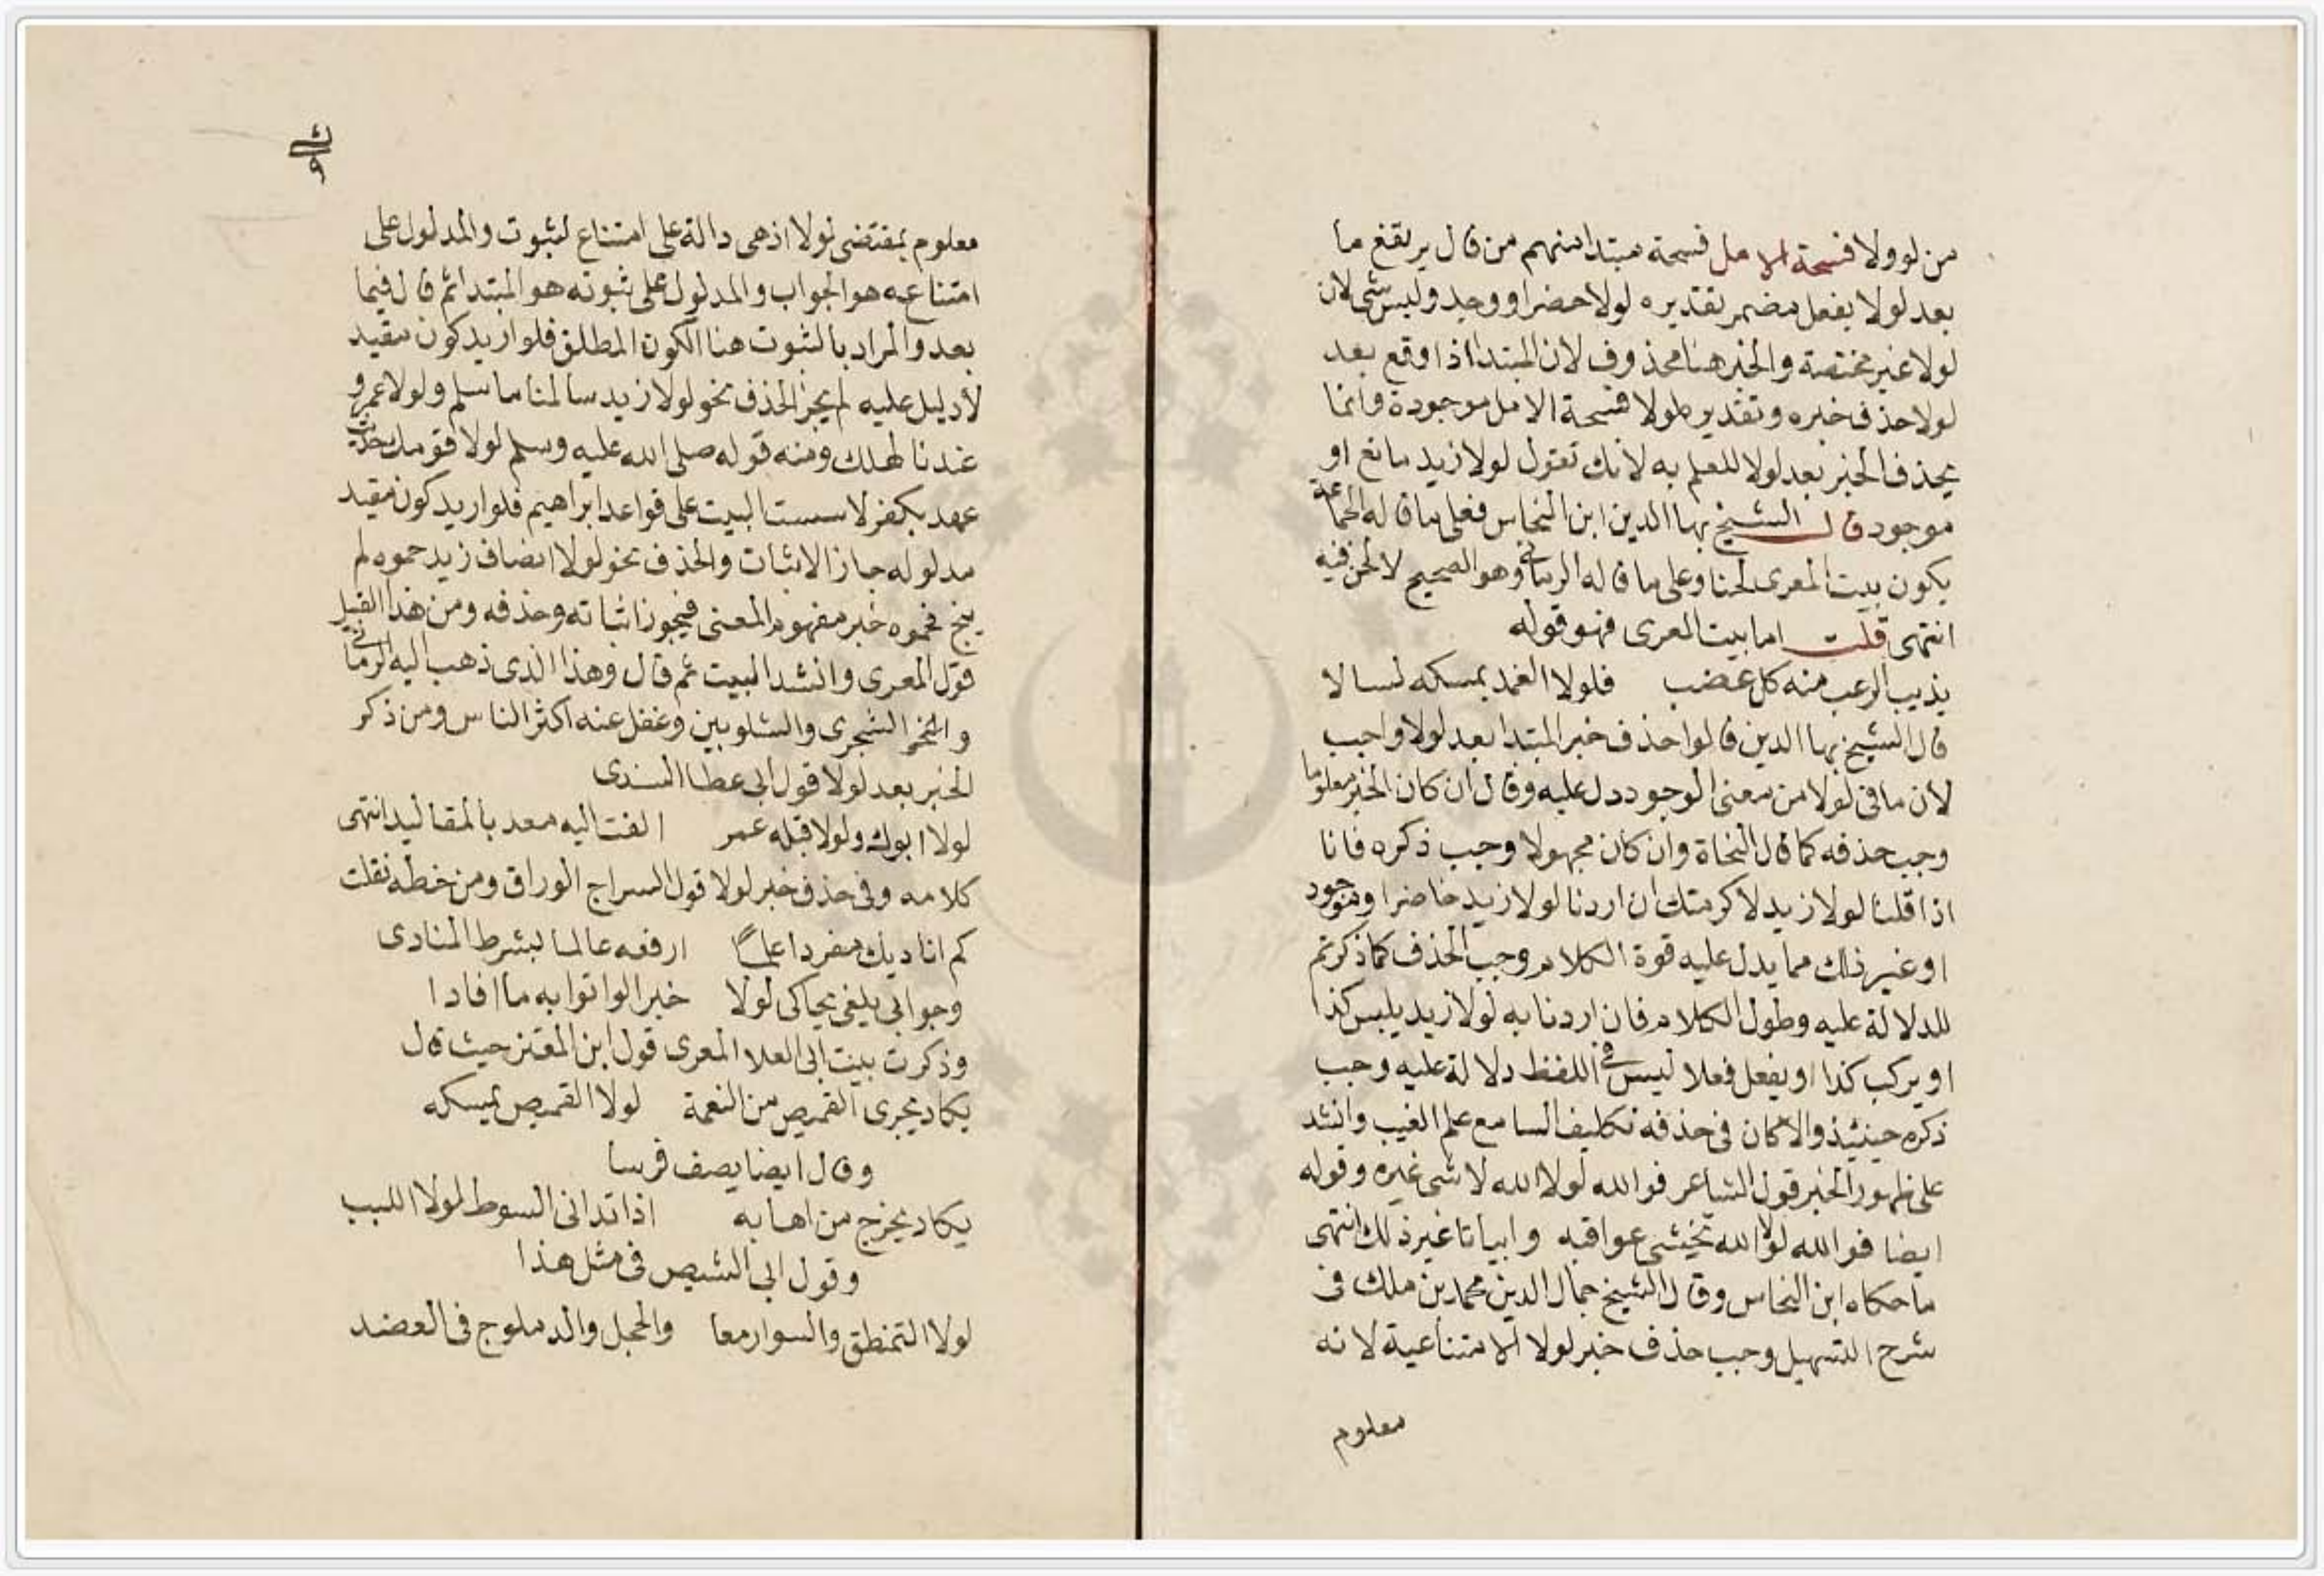 من لو ولا فسحة الامل فسحة مبتدا منهم من قال يرتفع ما
بعد لولا بفعل مضمر تقديره لولا حضر او وجد وليس بشى لان
لولا غير مختصة والخبر هنا محذوف لان المبتدا اذا وقع بعد
لولا حذف خبره وتقديره لولا فسحة الامل موجودة وانما
يحذف الخبر بعد لولا للعلم به لانك تقول لولا زيد مانع او
موجود قال الشيخ بها الدين ابن النحاس فعلى ما قاله الجماعة
يكون بيت المعرى لحنا وعلى ما قاله الرمانى وهو الصحيح لا لحن فيه
انتهى قلت اما بيت المعرى فهو قوله
يذيب الرعب منه كل عضب فلولا الغمد يمسكه لسالا
قال الشيخ بها الدين قالوا حذف خبر المبتدا بعد لولا واجب
لان ما فى لولا من معنى الوجود دل عليه وقال ان كان الخبر معلوما
وجب حذفه كما قال النحاة وان كان مجهولا وجب ذكره فانا
اذا قلنا لولا زيد لاكرمتك ان اردنا لولا زيد حاضرا وموجود
او غير ذلك مما يدل عليه قوة الكلام وجب الحذف كما ذكرتم
للدلالة عليه وطول الكلام فان اردنا به لولا زيد يلبس كذا
او يركب كذا او يفعل فعلا ليس فى اللفظ دلالة عليه وجب
ذكره حينئذ والا كان فى حذفه تكليف السامع علم الغيب وانشد
على ظهور الخبر قول الشاعر فوالله لولا الله لا شى غيره وقوله
ايضا فوالله لولا الله تخشى عواقبه وابياتا غير ذلك انتهى
ما حكاه ابن النحاس وقال الشيخ جمال الدين محمد بن ملك فى
شرح التسهيل وجب حذف خبر لولا الامتناعية لانه
معلوم
معلوم بمقتضى لولا اذ هى دالة على امتناع لثبوت والمدلول على
امتناعه هو الجواب والمدلول على ثبوته هو المبتدا ثم قال فيما
بعد والمراد بالثبوت هنا الكون المطلق فلو اريد كون مقيد
لا دليل عليه لم يجز الحذف نحو لولا زيد سالمنا ما سلم ولولا عمرو
عندنا لهلك ومنه قوله صلى الله عليه وسلم لولا قومك حديث
عهد بكفر لاسست البيت على قواعد ابراهيم فلو اريد كون مقيد
مدلوله جاز الاثبات والحذف نحو لولا انصاف زيد حموه لم
ينج فحموه خبر مفهوم المعنى فيجوز اثباته وحذفه ومن هذا القبيل
قول المعرى وانشد البيت ثم قال وهذا الذى ذهب اليه الرمانى
والشجرى والشلوبين وغفل عنه اكثر الناس ومن ذكر
الخبر بعد لولا قول ابى عطا السندى
لولا ابوك ولولا قبله عمر القت اليه معد بالمقاليد انتهى
كلامه وفى حذف خبر لولا قول السراج الوراق ومن خطه نقلت
كم اناديك مفردا علما ارفعه عالما بشرط المنادى
وجوابى يلغى يحاكى لولا خبر الواتوا به ما افادا
وذكرت ببيت ابى العلا المعرى قول ابن المعتز حيث قال
يكاد يجرى القميص من النعمة لولا القميص يمسكه
وقال ايضا يصف فرسا
يكاد يخرج من اهابه اذا تدانى السوط لولا اللبب
وقول ابى الشيص فى مثل هذا
لولا التمنطق والسوار معا والحجل والدملوج فى العضد